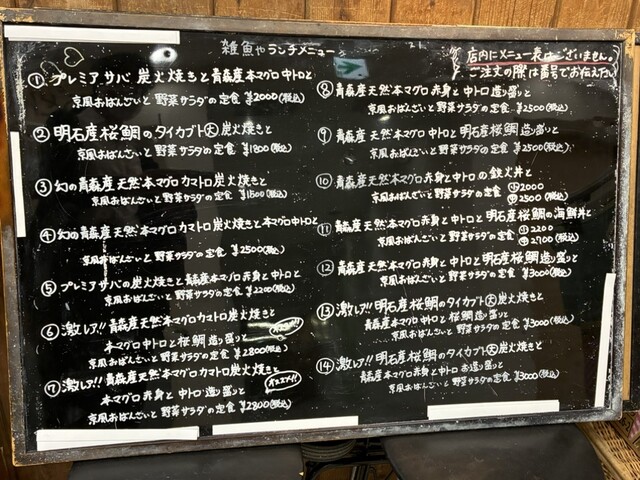 雑魚やランチメニュー
店内にメニュー表はございません。
ご注文の際は番号でお伝え下さい
① プレミアサバ 炭火焼きと 青森産本マグロ 中トロと
京風おばんざいと 野菜サラダの定食 ¥2000(税込)
② 明石産桜鯛のタイカブト大 炭火焼きと
京風おばんざいと 野菜サラダの定食 ¥1800(税込)
③ 幻の青森産天然本マグロカマトロ炭火焼きと
京風おばんざいと 野菜サラダの定食 ¥1500(税込)
④ 幻の青森産天然本マグロカマトロ炭火焼きと本マグロ中トロと
京風おばんざいと 野菜サラダの定食 ¥2500(税込)
⑤ プレミアサバの炭火焼きと青森産本マグロ赤身と中トロと
京風おばんざいと 野菜サラダの定食 ¥2200(税込)
⑥ 激レア!! 青森産天然本マグロカマトロ炭火焼きと
本マグロ中トロと桜鯛造り盛りと
京風おばんざいと野菜サラダの定食 ¥2800(税込)
オススメ!!
⑦ 激レア!! 青森産天然本マグロカマトロ炭火焼きと
本マグロ赤身と中トロ造り盛りと
京風おばんざいと野菜サラダの定食 ¥2800(税込)
オススメ!!
⑧ 青森産天然本マグロ赤身と中トロ造り盛りと
京風おばんざいと 野菜サラダの定食 ¥2500(税込)
⑨ 青森産天然本マグロ中トロと明石産桜鯛造り盛りと
京風おばんざいと野菜サラダの定食 ¥2500(税込)
⑩ 青森産天然本マグロ赤身と中トロの鉄火丼と
京風おばんざいと野菜サラダの定食 小2000
中2500(税込)
⑪ 青森産天然本マグロ赤身と中トロと明石産桜鯛の海鮮丼と
京風おばんざいと野菜サラダの定食 小2200
中2700(税込)
⑫ 青森産天然本マグロ赤身と中トロと明石産桜鯛造り盛りと
京風おばんざいと野菜サラダの定食 ¥3000(税込)
⑬ 激レア!! 明石産桜鯛のタイカブト大炭火焼きと
青森産本マグロ中トロと桜鯛造り盛りと
京風おばんざいと野菜サラダの定食 ¥3000(税込)
⑭ 激レア!! 明石産桜鯛のタイカブト大炭火焼きと
青森産本マグロ赤身と中トロお造り盛りと
京風おばんざいと野菜サラダの定食 ¥3000(税込)